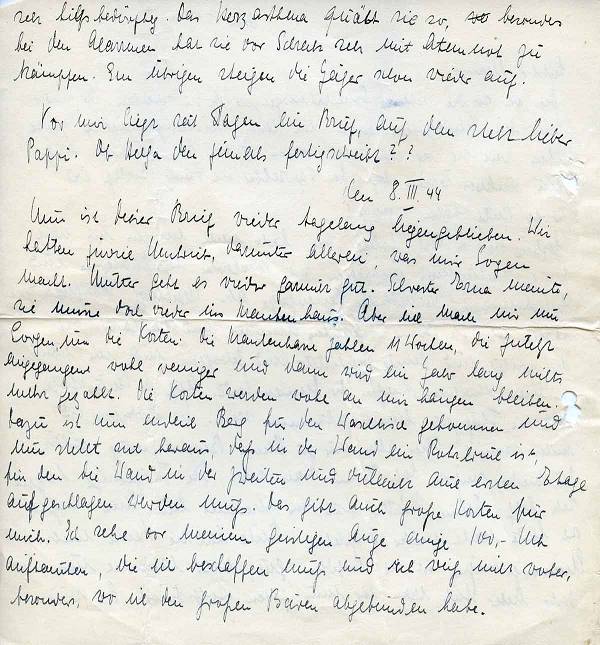 sehr hilfsbedürftig. Das Herzasthma quält sie so, besonders
bei den Alarmen hat sie vor Schreck sehr mit Atemnot zu
kämpfen. Im übrigen steigen die Gäger schon wieder auf.
Vor mir liegt seit Tagen ein Brief, auf dem steht lieber
Pappi. Ob Helga den jemals fertigschreibt??
Den 8. III. 44
Nun ist dieser Brief wieder tagelang liegengeblieben. Wir
hatten soviel Unruhe, darunter allerlei, was mir Sorgen
macht. Mutter geht es wieder garnicht gut. Schwester Erna meinte,
sie müsse doch wieder ins Krankenhaus. Aber ich mache mir nun
Sorgen um die Kosten. Die Krankenkasse zahlen 11 Wochen, die zuletzt
angegangene wohl weniger und dann wird ein Jahr lang nichts
mehr gezahlt. Die Kosten werden wohl an mir hängen bleiben.
Dazu ist nun endlich Berg für den Waschtisch gekommen und
nun stellt sich heraus, daß in der Wand ein Rohrbruch ist,
für den die Wand in der zweiten und vielleicht auch ersten Etage
aufgeschlagen werden muß. Das gibt auch große Kosten für
mich. Ich sehe vor meinem geistigen Auge einige 100,- Mk
auftauchen, die ich beschaffen muß und ich weiß nicht woher,
besonders, wo ich den großen Bären abgebunden habe.